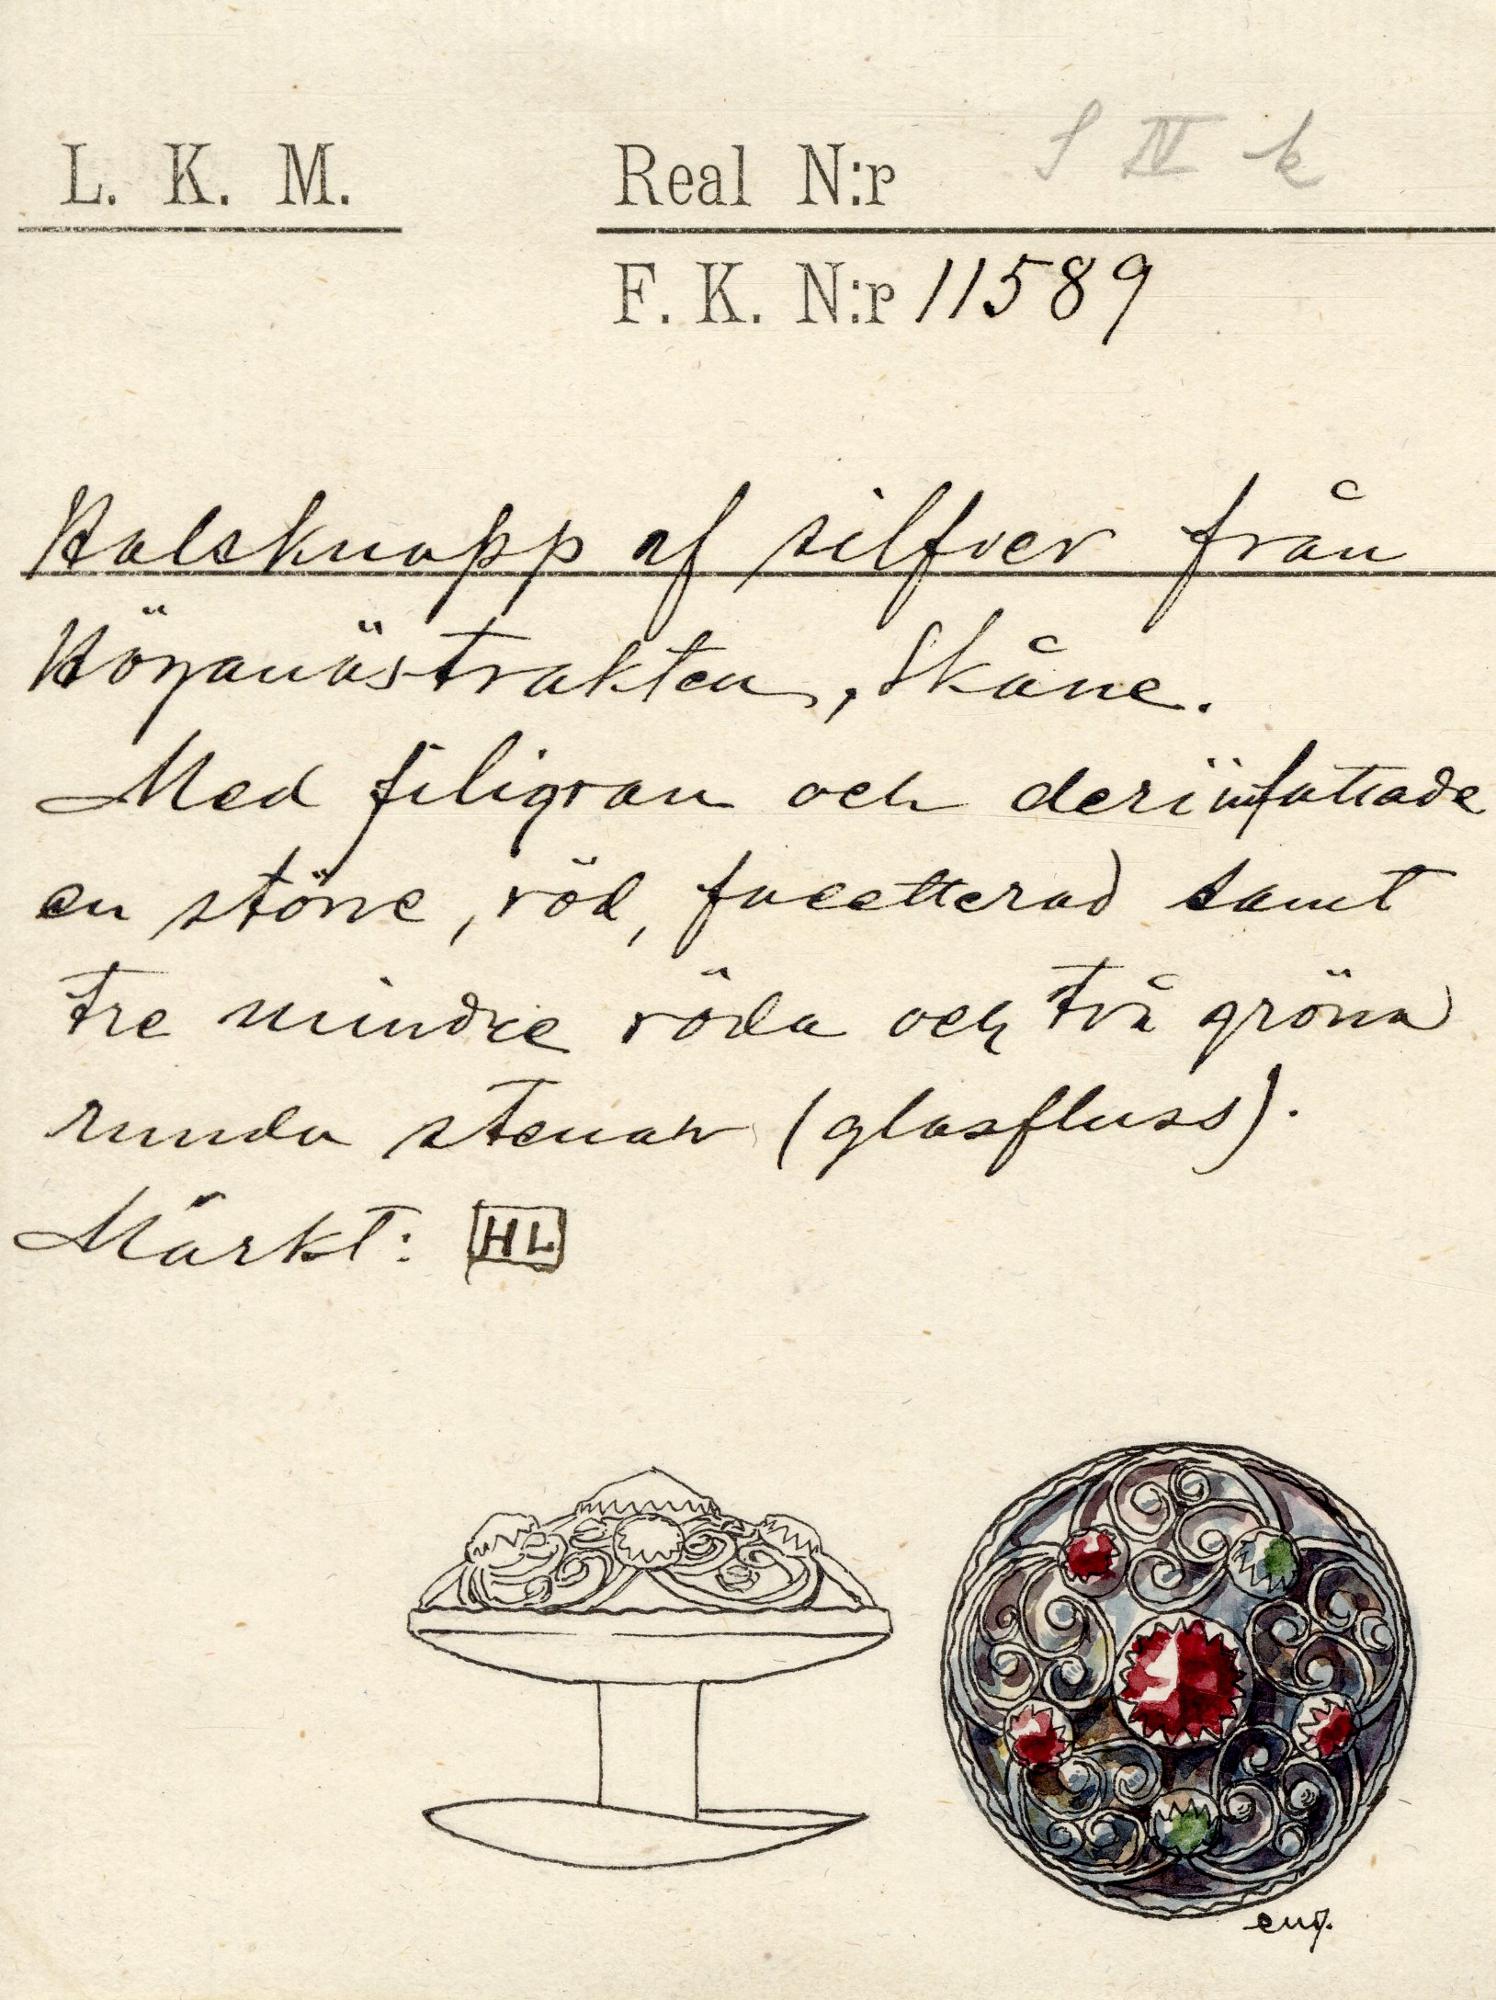 L. K. M. Real N:r S IV k
F. K. N:r 11589
Halsknapp af silfver från
Höganästrakten, Skåne.
Med filigran och deri infattade
en större, röd, facetterad samt
tre mindre röda och två gröna
runda stenar (glasfluss).
Märkt: HL